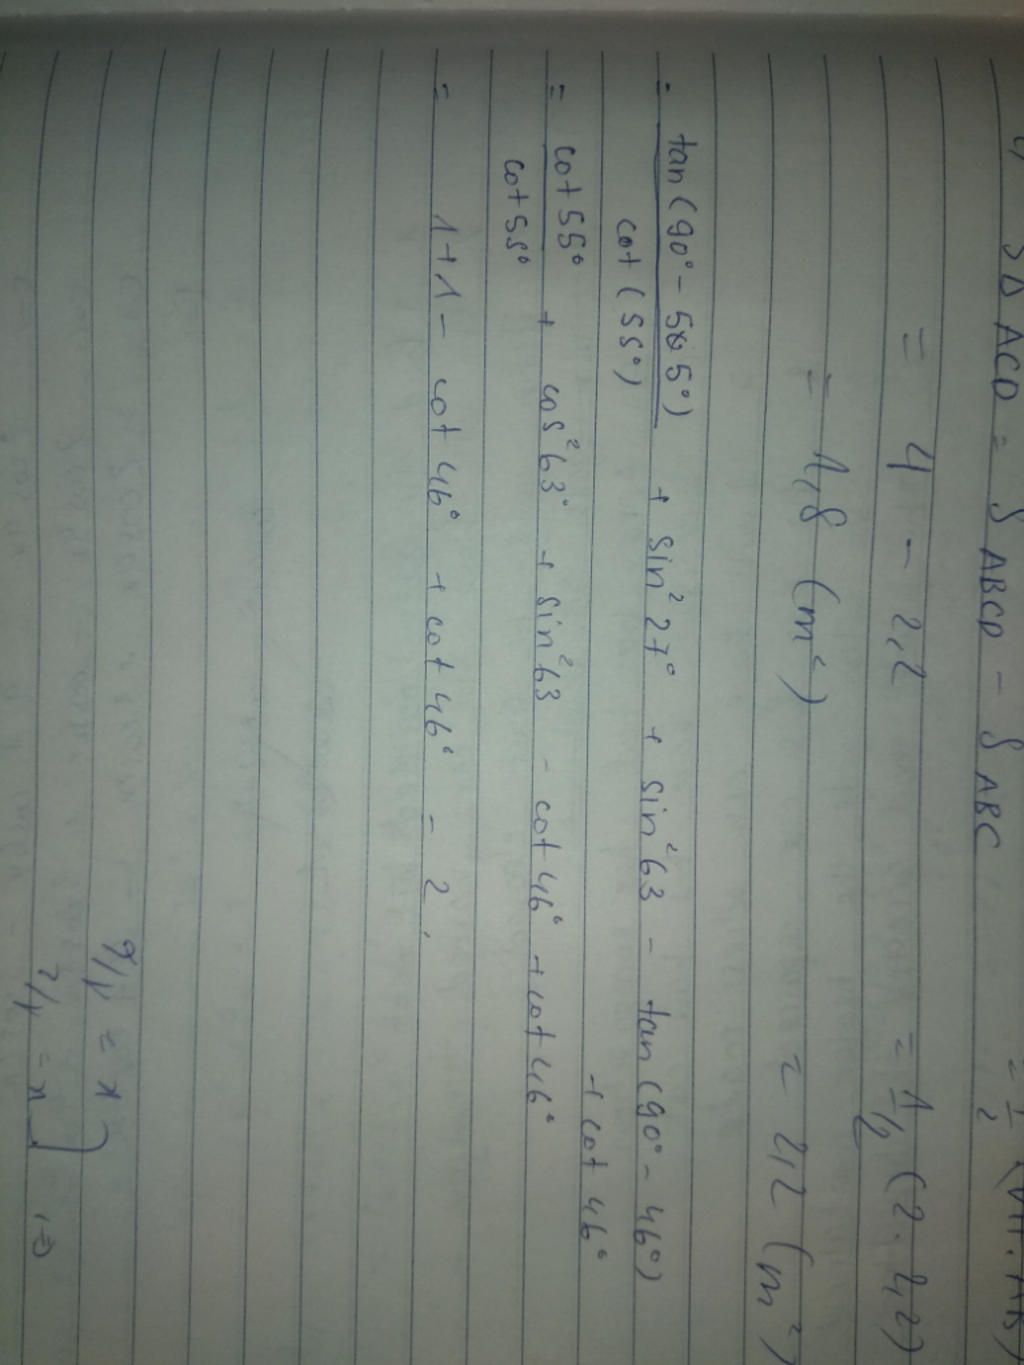 S∆ ACD = S ABCD - S ABC
= 4 - 2,2
= 1/2 (2. 2,2)
= 1,8 (m²)
= 2,2 (m²)
= tan(90° - 55°)/cot(55°) + sin²27° + sin²63 - tan(90° - 46°)
+ cot 46°
= cot 55°/cot 55° + cos²63° + sin²63 - cot 46° + cot 46°
= 1+1 - cot 46° + cot 46° = 2.
x = 1/6
x = 1/2